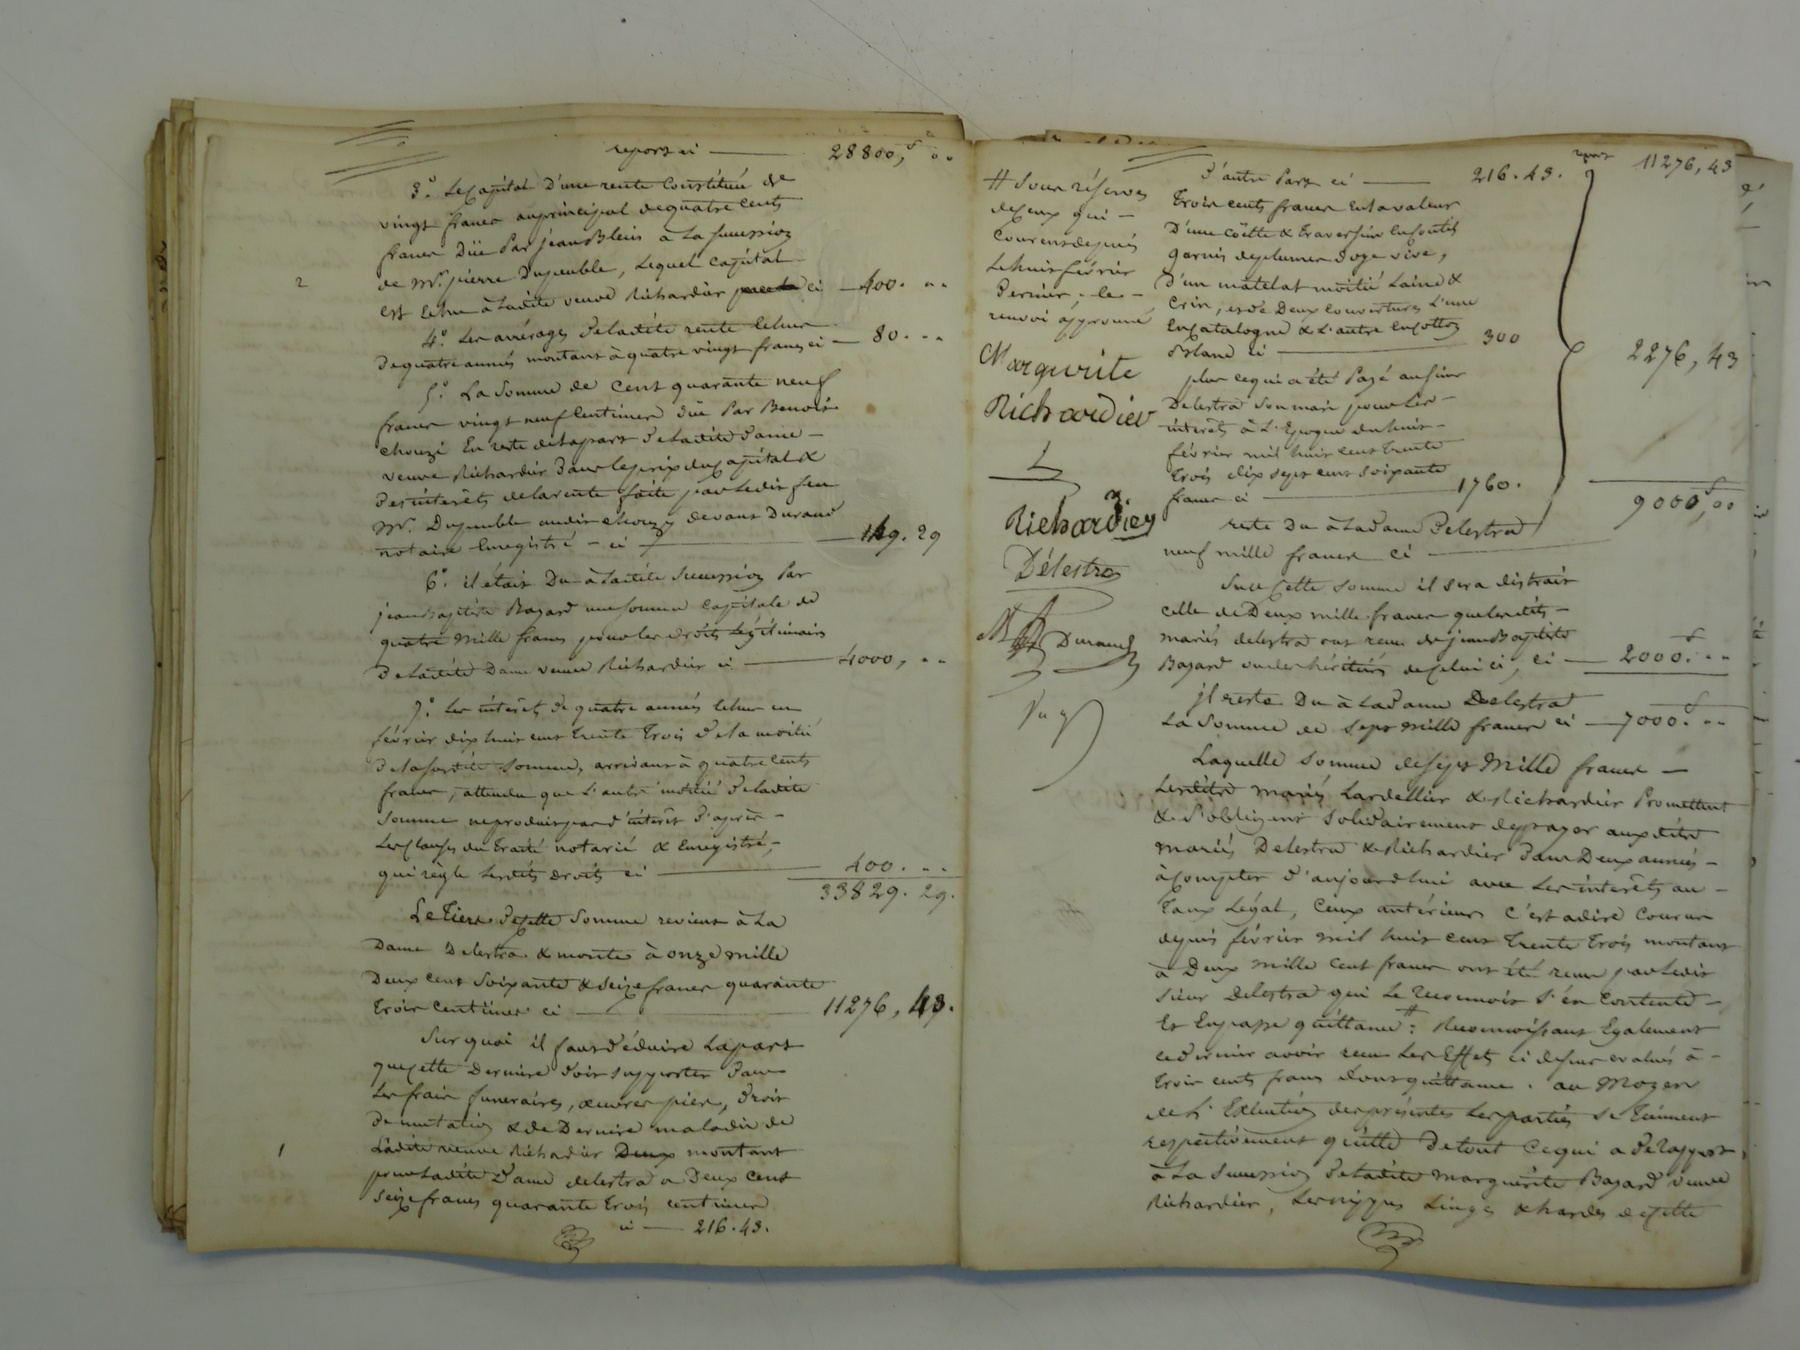 report ci — 28800,f ..
3.° Le capital d'une rente constituée de
vingt francs au principal de quatre cents
francs düe par jean Blein à la succession
de Mr. pierre Dupeuble, lequel capital
2
est échu à ladite veuve Richardier ci — 400. ..
4.° Les arrérages de ladite rente échus
de quatre années montant à quatre vingt francs ci — 80. ..
5.° La somme de cent quarante neuf
francs vingt neuf centimes düe par Benoit
chouzi en reste de la part de ladite dame
veuve Richardier dans le prix du capital &
des intérêts de la rente faite par ledit feu
Mr. Dupeuble audit chouzy devant Durand
notaire enregistré – ci — 149. 29
6.° il était du à ladite succession par
jean baptiste Bazard une somme capitale de
quatre mille francs pour les droits légitimaires
de ladite Dame veuve Richardier ci — 4000, ..
7.° Les intérêts de quatre années échus en
février dix huit cent trente trois de la moitié
de la susdite somme, arrivant à quatre cents
francs, attendu que l'autre moitié de ladite
somme ne produit pas d'intérêt d'après
les clauses du traité notarié & enregistré,
qui règle lesdits droits ci — 400. ..
33829. 29.
Le tiers de cette somme revient à la
Dame Delestra & monte à onze mille
Deux cent soixante & seize francs quarante
trois centimes ci — 11276, 43.
Sur quoi il faut déduire la part
que cette dernière doit supporter dans
les frais funeraires, œuvres pies, droit
de mutation & de dernière maladie de
1
ladite veuve Richardier Deux montant
pour ladite Dame delestra a Deux cent
seize francs quarante trois centimes
ci — 216. 43.
report 11276, 43
d'autre part ci — 216. 43.
Trois cents francs est la valeur
D'une coëtte & traversier en coutil
garnis de plumes d'oye vive,
d'un matelat moitié Laine &
Crin, et de Deux couvertures l'une
en catalogne & l'autre en cotton
blanc ci — 300
2276, 43
plus ce qui a été payé au sieur
Delestra son mari pour les
intérêts à l'Epoque du huit
février mil huit cent trente
trois dix sept cent soixante
francs ci — 1760.
reste du à la dame Delestra
neuf mille francs ci — 9000f,00
Sur cette somme il sera distrait
celle de Deux mille francs que lesdits
mariés delestra ont reçu de jean Baptiste
Bazard ou des héritiers de celui ci, ci — 2000.f ..
Il reste Du à la dame Delestra
La somme de sept mille francs ci — 7000.f ..
Laquelle somme de sept mille francs
lesdits mariés Lardellier & Richardier Promettent
& s'obligent solidairement de payer auxdits
mariés Delestra & Richardier dans Deux années
à compter d'aujourd'hui avec les intérêts au
Taux légal, Ceux antérieurs c'est adire courus
depuis février mil huit cent trente trois montant
à Deux mille cent francs ont été reçus par ledit
sieur Delestra qui le reconnoit s'en contente
Et En passe quittance #: Reconnoissant Egalement
ce dernier avoir reçu les Effets ci dessus evalués à
trois cents francs dont quittance. au Moyen
de l'Exécution des présentes les parties se tiennent
respectivement quitte de tout ce qui a de rapport
à la succession de ladite Marguerite Bazard veuve
Richardier, Les nippes Linges & hardes de cette
# Sous réserve
de ceux qui
courent depuis
le huit février
dernier. le
renvoi approuvé
Marguerite
Richardier
L
Richardier
Délestra
Durand